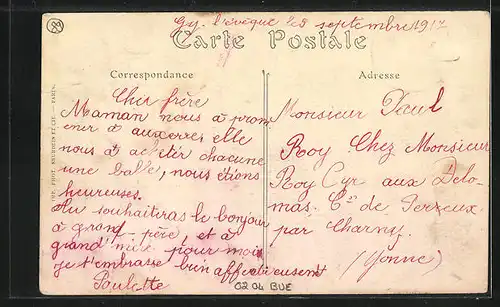 89
Gy-l'évêque le 8 septembre 1917
Carte Postale
Correspondance
Cher frère
Maman nous a prom
ener à auxerre, elle
nous a acheter chacune
une balle, nous étions
heureuses.
tu souhaiteras le bonjour
à grand-père, et à
grand'mère pour moi
je t'embrasse bien affectueusement
Paulette
Adresse
Monsieur Paul
Roy Chez Monsieur
Roy Cyr aux Delo-
mas. Cne de Perreux
par Charny
(Yonne)
IMP. PHOT. NEURDEIN ET CIE. - PARIS.
0204 BUE